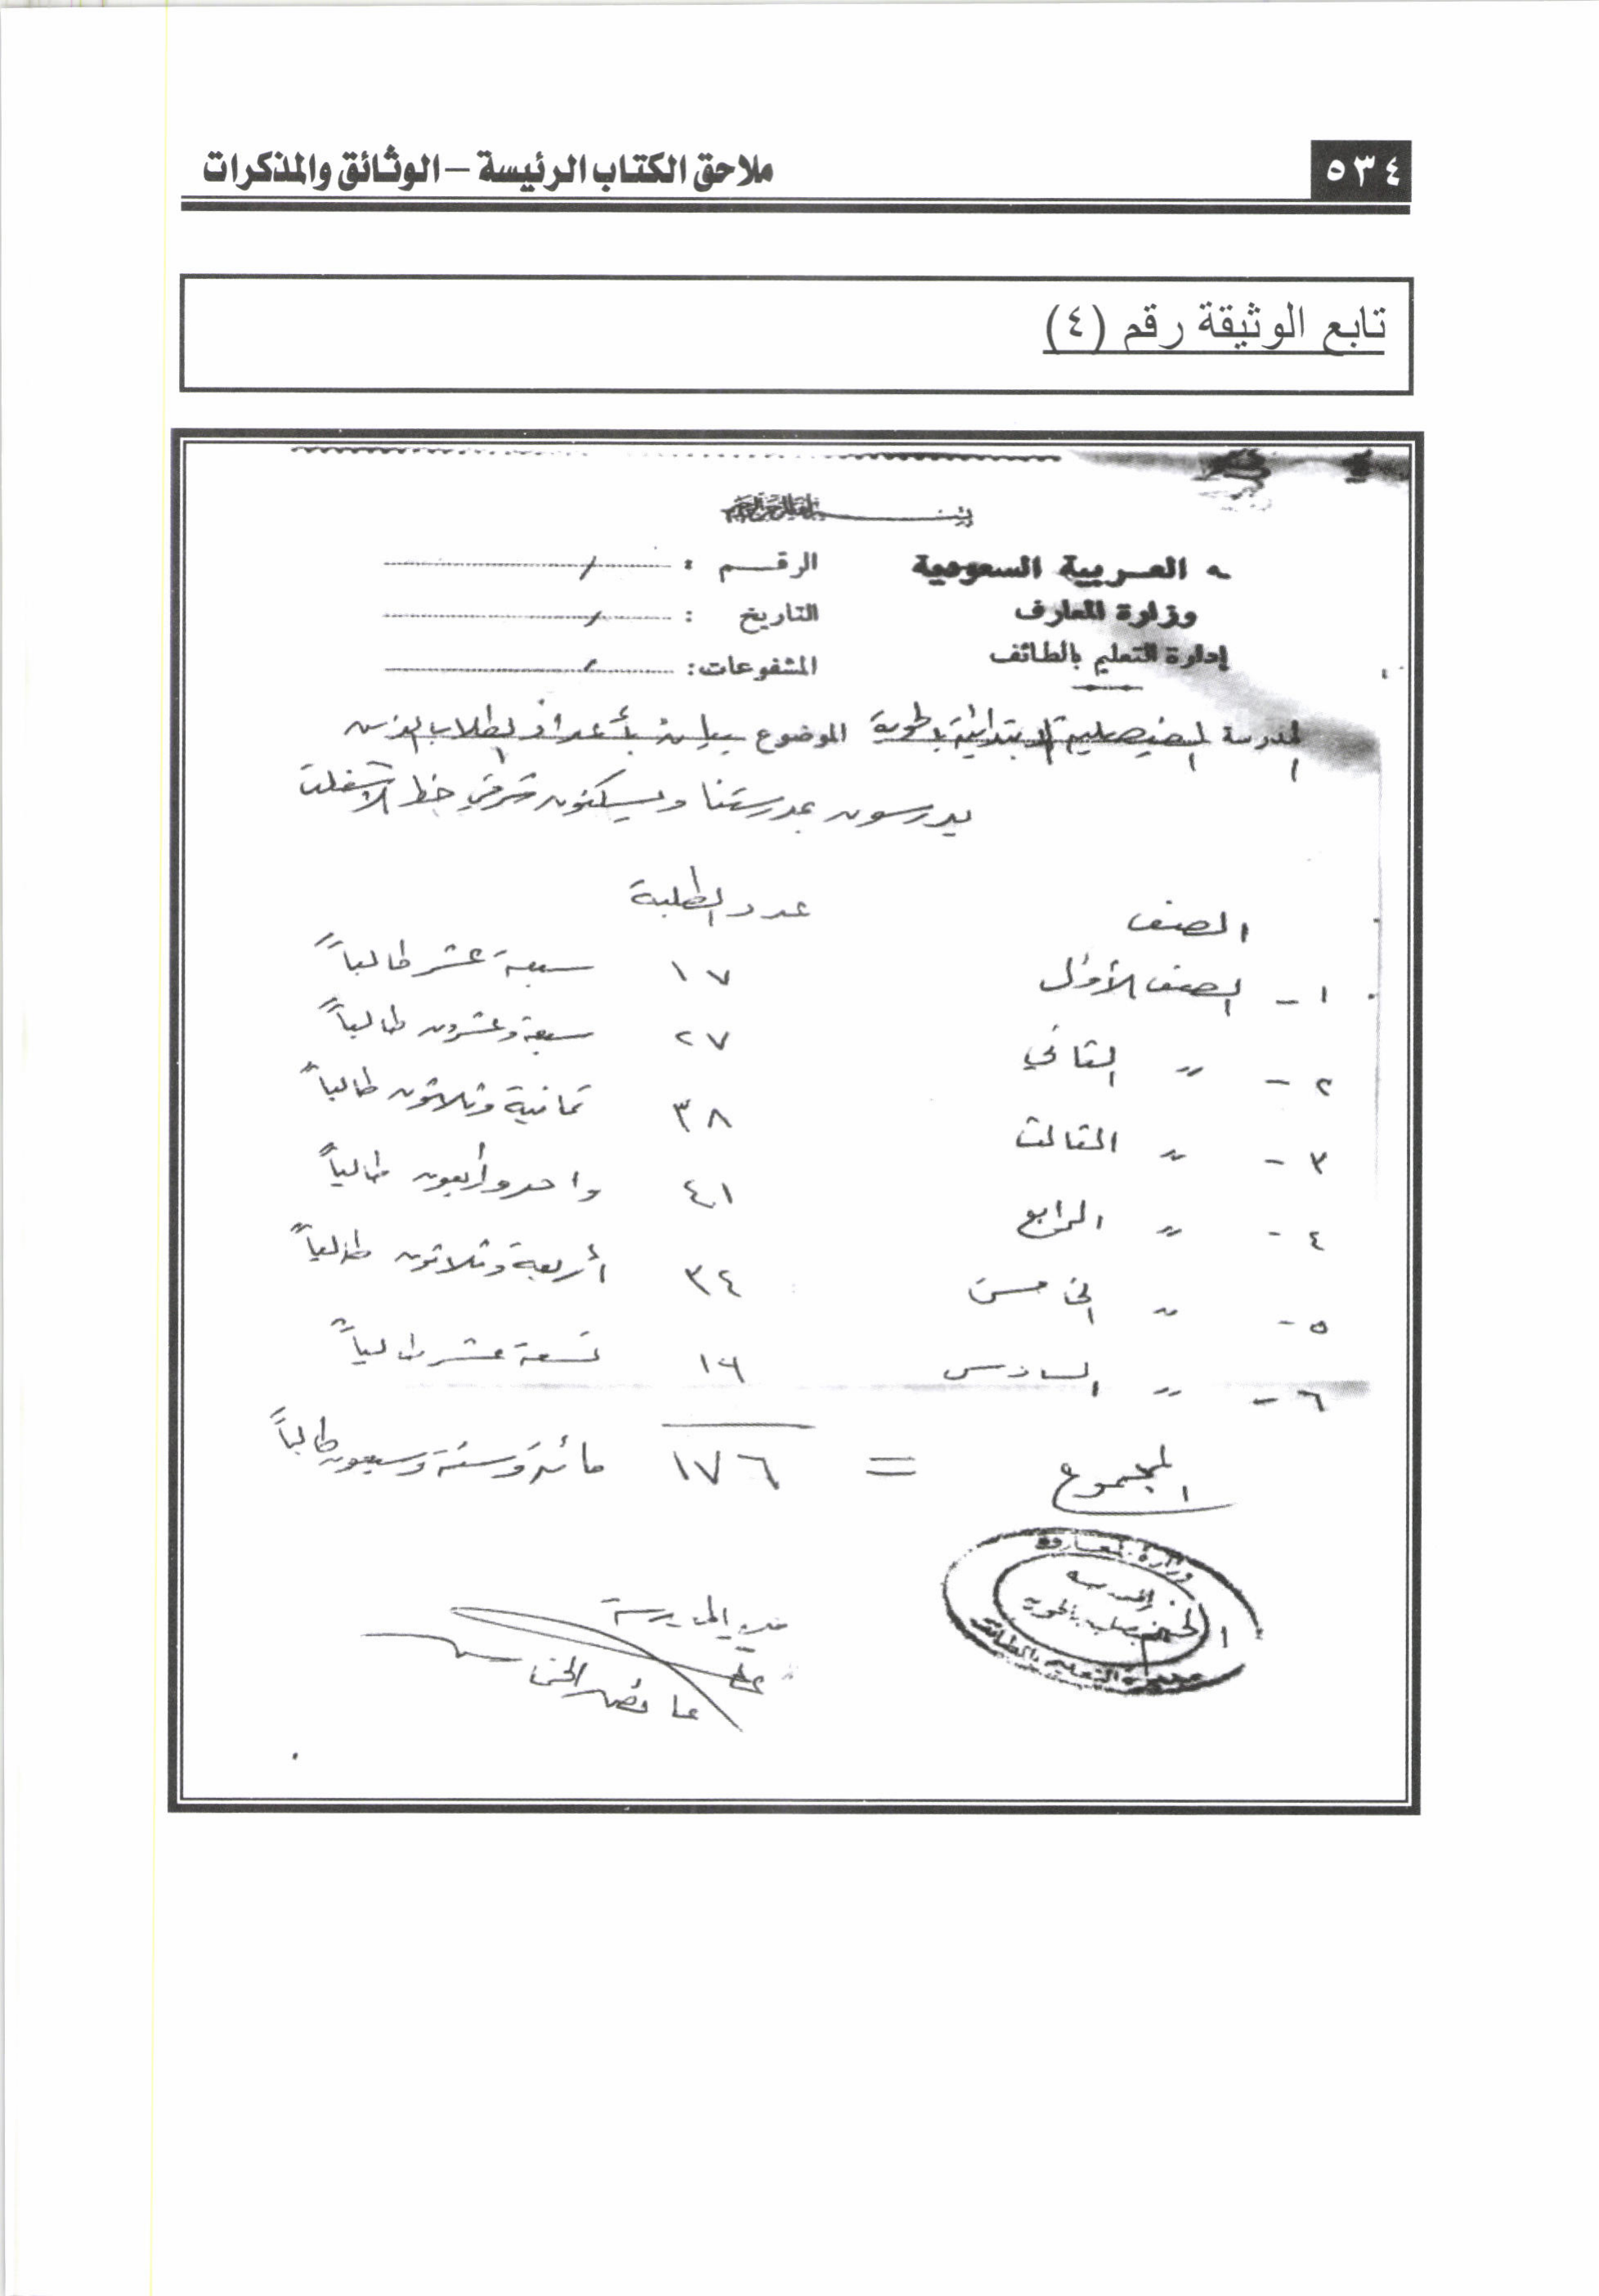 ٥٣٤
ملاحق الكتاب الرئيسة – الوثائق والمذكرات
تابع الوثيقة رقم (٤)
العربية السعودية
وزارة المعارف
إدارة التعليم بالطائف
الرقم : /
التاريخ : /
المشفوعات: /
المدرسة الابتدائية بالحوية الموضوع بيان بأعداد الطلاب الذين
يدرسون بمدرستنا ويسكنون شرقي خط الاسفلت
الصف عدد الطلبة
١ - الصف الأول ١٧ سبعة عشر طالباً
٢ - " الثاني ٢٧ سبعة وعشرون طالباً
٣ - " الثالث ٣٨ ثمانية وثلاثون طالباً
٤ - " الرابع ٤١ واحد وأربعون طالباً
٥ - " الخامس ٣٤ أربعة وثلاثون طالباً
٦ - " السادس ١٩ تسعة عشر طالباً
المجموع = ١٧٦ مائة وستة وسبعون طالباً
وزارة المعارف
المدرسة
بالحوية
التعليم بالطائف
مدير المدرسة
عائض